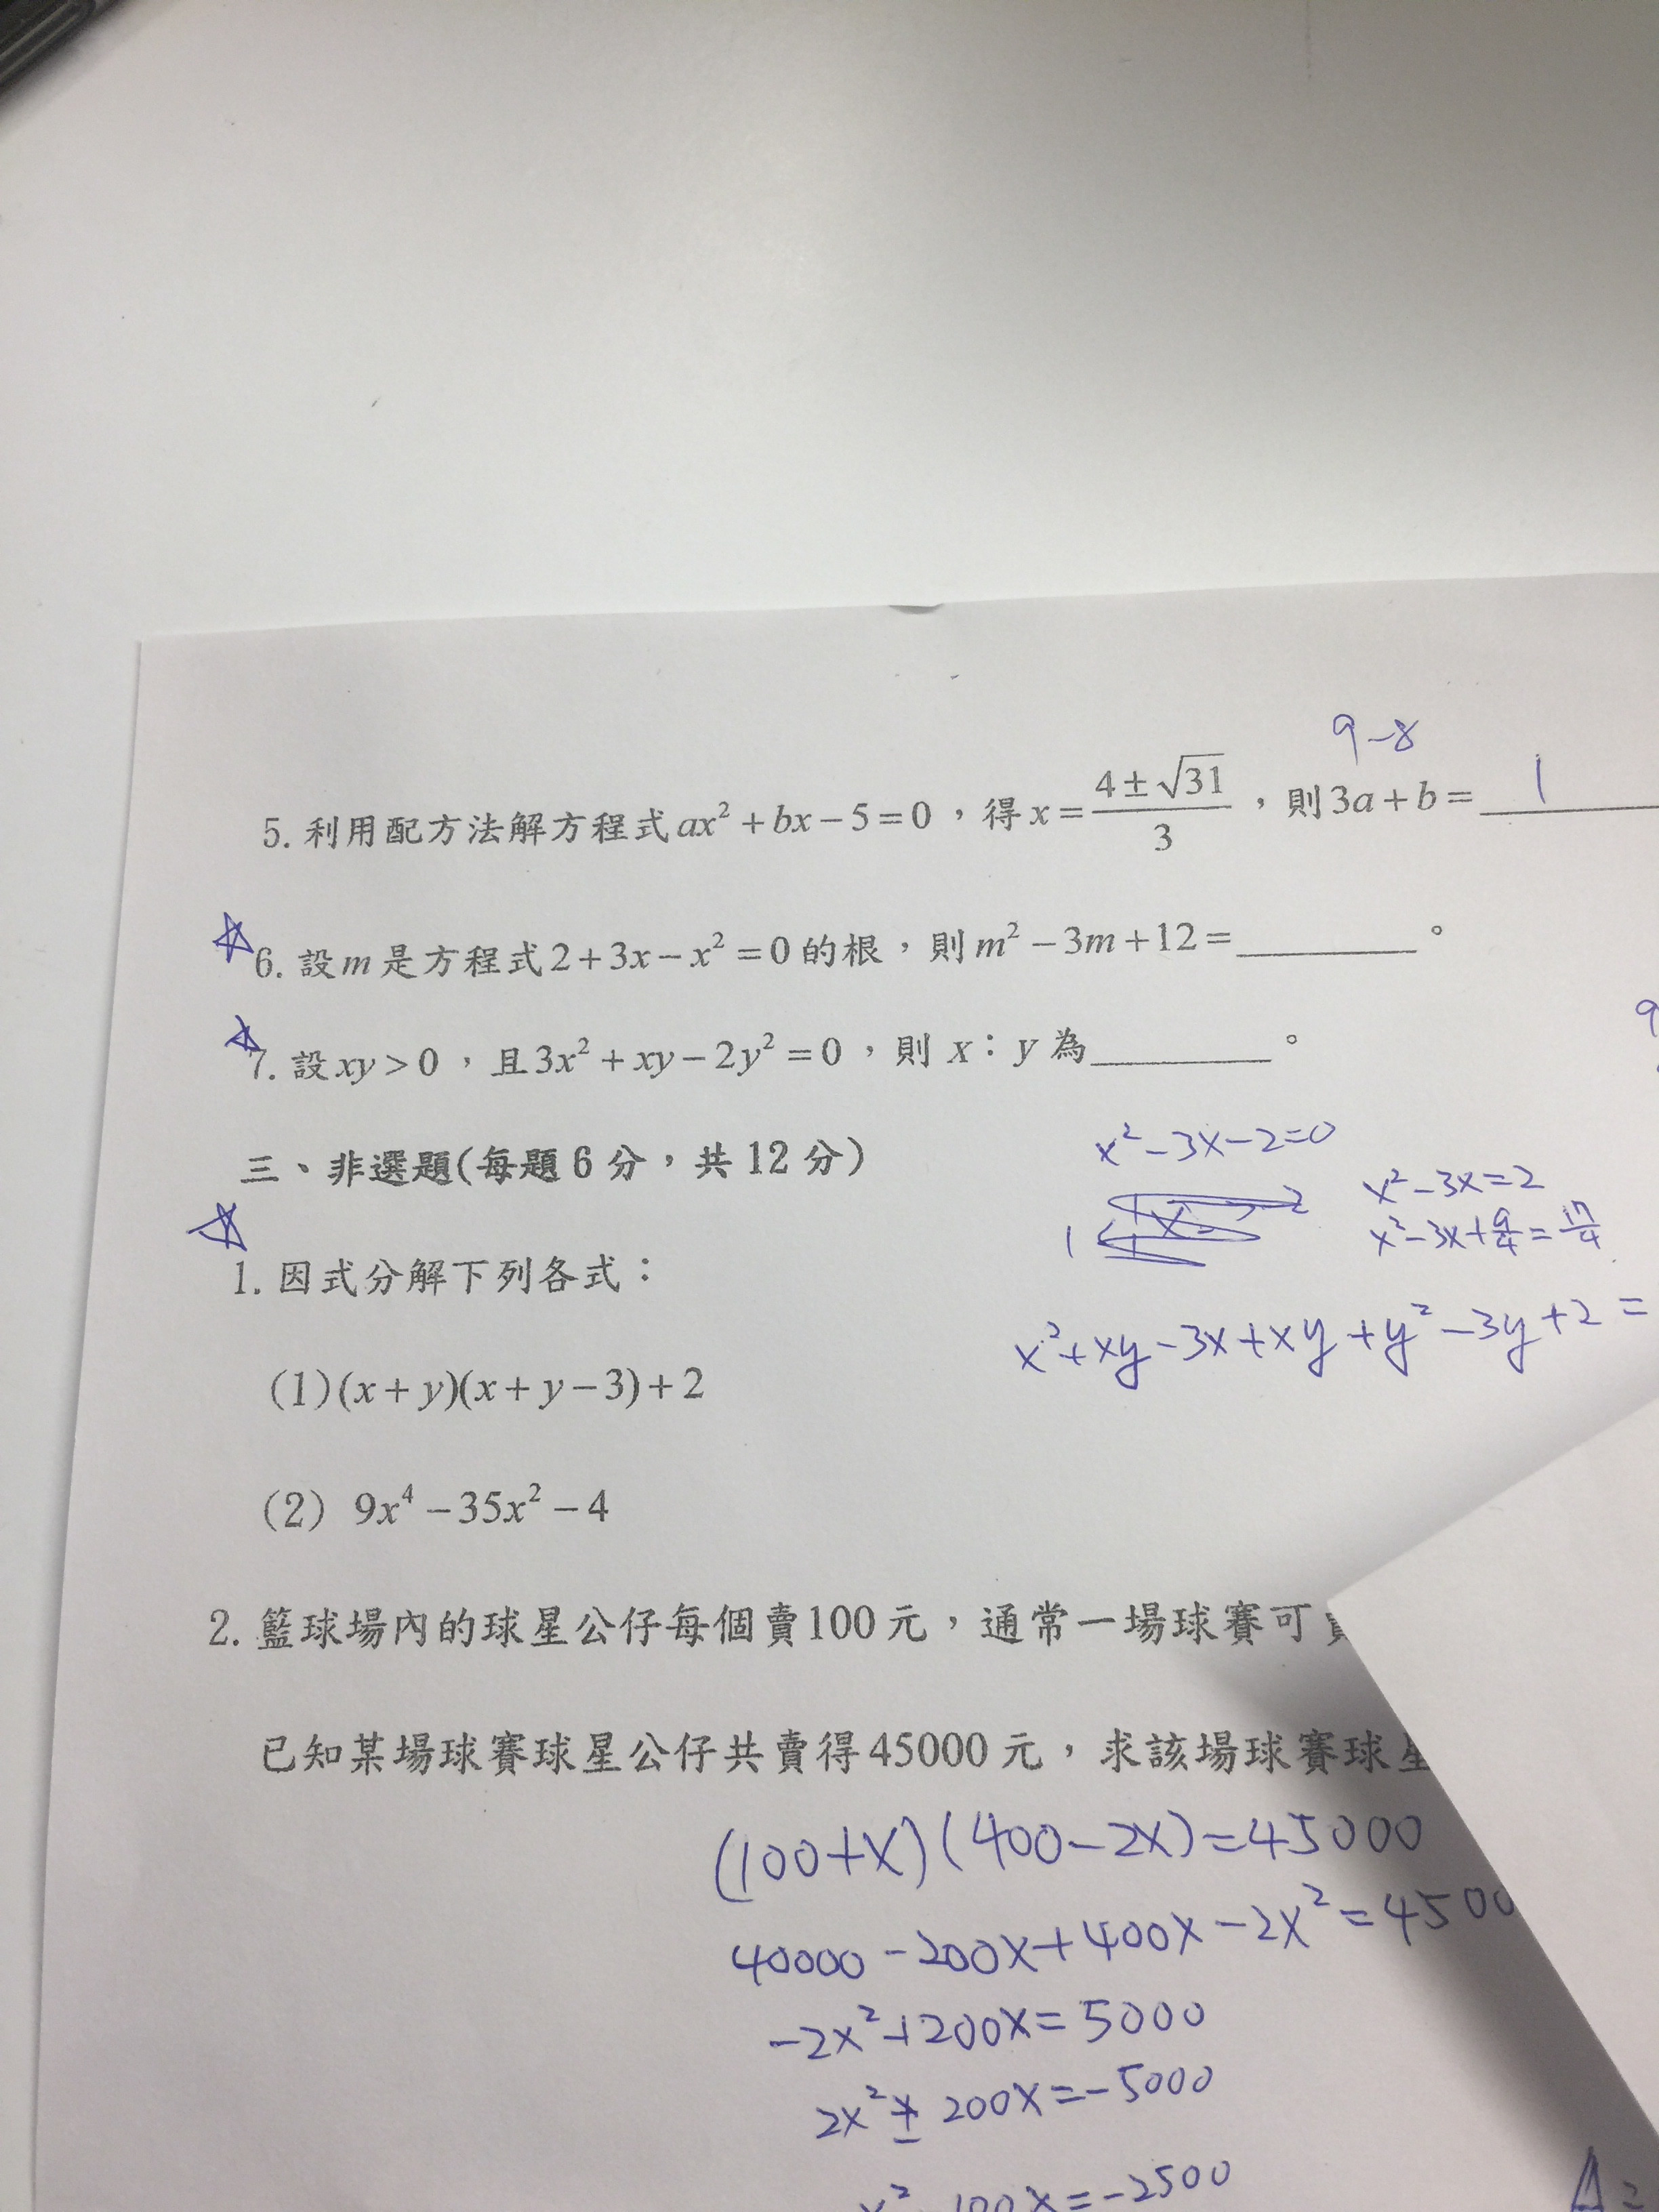 9-8
5. 利用配方法解方程式 ax² + bx − 5 = 0，得 x = (4 ± √31)/3，則 3a + b = 1
6. 設 m 是方程式 2 + 3x − x² = 0 的根，則 m² − 3m + 12 = ________。
7. 設 xy > 0，且 3x² + xy − 2y² = 0，則 x：y 為________。
9
三、非選題(每題 6 分，共 12 分)
x² − 3x − 2 = 0
x² − 3x = 2
x² − 3x + 9/4 = 17/4
1
1. 因式分解下列各式：
x² + xy − 3x + xy + y² − 3y + 2 =
(1) (x + y)(x + y − 3) + 2
(2) 9x⁴ − 35x² − 4
2. 籃球場內的球星公仔每個賣 100 元，通常一場球賽可
已知某場球賽球星公仔共賣得 45000 元，求該場球賽球星
(100+x)(400−2x)=45000
40000 − 200x + 400x − 2x² = 4500
−2x² + 200x = 5000
2x² ± 200x = −5000
x² 100x = −2500